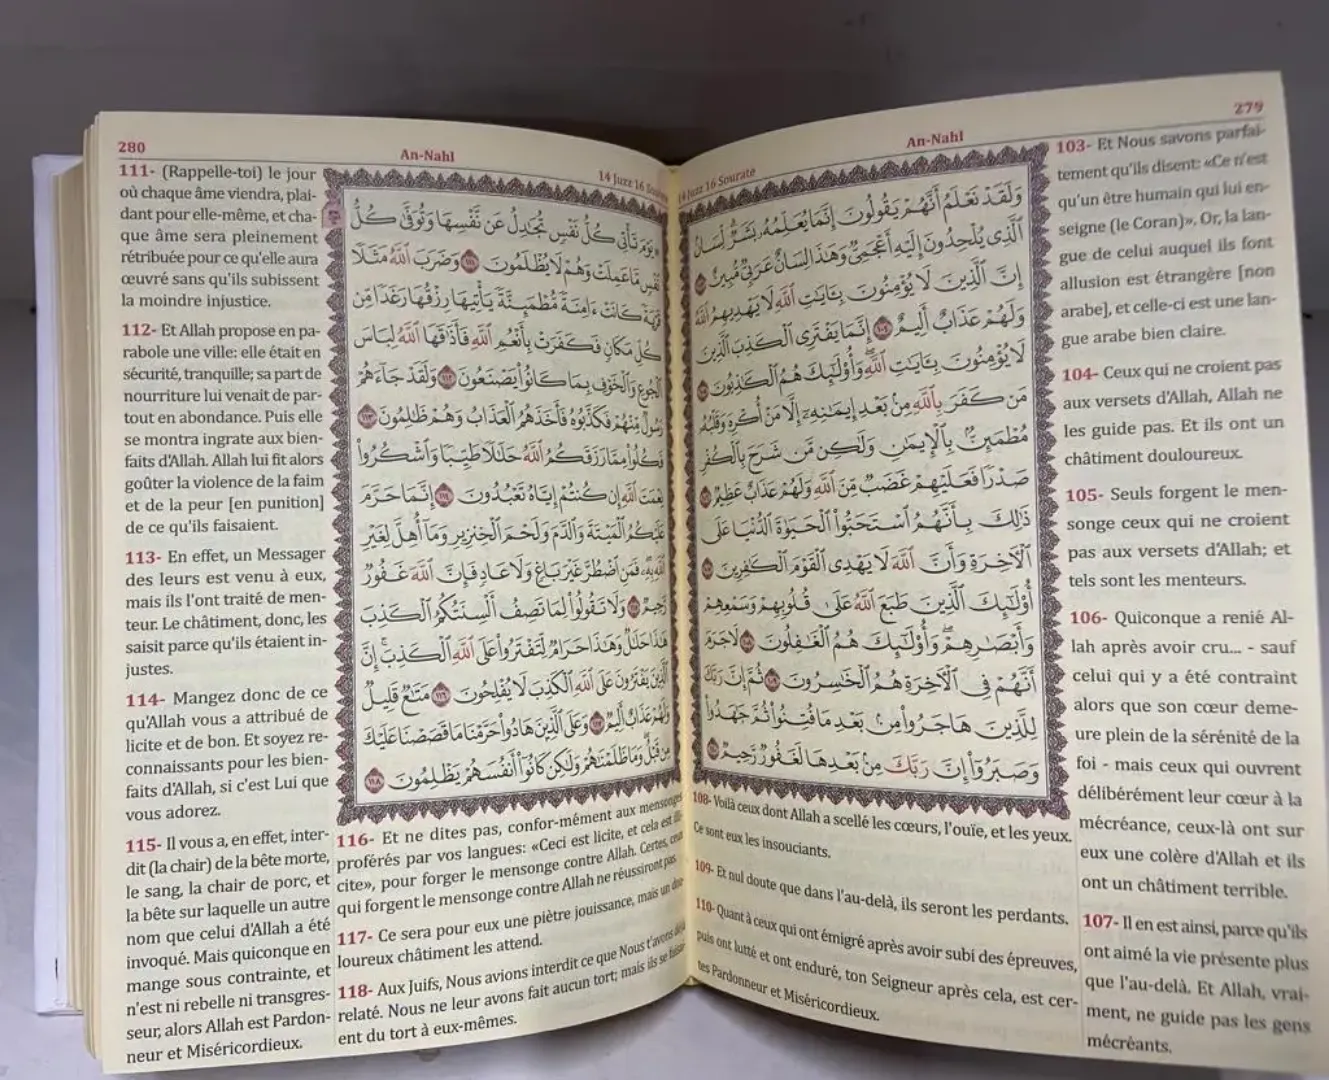 279
An-Nahl
14 Juzz 16 Sourate
وَلَقَدْ نَعْلَمُ أَنَّهُمْ يَقُولُونَ إِنَّمَا يُعَلِّمُهُۥ بَشَرٌ لِّسَانُ
ٱلَّذِى يُلْحِدُونَ إِلَيْهِ أَعْجَمِىٌّ وَهَٰذَا لِسَانٌ عَرَبِىٌّ مُّبِينٌ ١٠٣
إِنَّ ٱلَّذِينَ لَا يُؤْمِنُونَ بِـَٔايَٰتِ ٱللَّهِ لَا يَهْدِيهِمُ ٱللَّهُ
وَلَهُمْ عَذَابٌ أَلِيمٌ ١٠٤ إِنَّمَا يَفْتَرِى ٱلْكَذِبَ ٱلَّذِينَ
لَا يُؤْمِنُونَ بِـَٔايَٰتِ ٱللَّهِ ۖ وَأُو۟لَٰٓئِكَ هُمُ ٱلْكَٰذِبُونَ ١٠٥
مَن كَفَرَ بِٱللَّهِ مِنۢ بَعْدِ إِيمَٰنِهِۦٓ إِلَّا مَنْ أُكْرِهَ وَقَلْبُهُۥ
مُطْمَئِنٌّۢ بِٱلْإِيمَٰنِ وَلَٰكِن مَّن شَرَحَ بِٱلْكُفْرِ
صَدْرًا فَعَلَيْهِمْ غَضَبٌ مِّنَ ٱللَّهِ وَلَهُمْ عَذَابٌ عَظِيمٌ ١٠٦
ذَٰلِكَ بِأَنَّهُمُ ٱسْتَحَبُّوا۟ ٱلْحَيَوٰةَ ٱلدُّنْيَا عَلَى
ٱلْـَٔاخِرَةِ وَأَنَّ ٱللَّهَ لَا يَهْدِى ٱلْقَوْمَ ٱلْكَٰفِرِينَ ١٠٧
أُو۟لَٰٓئِكَ ٱلَّذِينَ طَبَعَ ٱللَّهُ عَلَىٰ قُلُوبِهِمْ وَسَمْعِهِمْ
وَأَبْصَٰرِهِمْ ۖ وَأُو۟لَٰٓئِكَ هُمُ ٱلْغَٰفِلُونَ ١٠٨ لَا جَرَمَ
أَنَّهُمْ فِى ٱلْـَٔاخِرَةِ هُمُ ٱلْخَٰسِرُونَ ١٠٩ ثُمَّ إِنَّ رَبَّكَ
لِلَّذِينَ هَاجَرُوا۟ مِنۢ بَعْدِ مَا فُتِنُوا۟ ثُمَّ جَٰهَدُوا۟
وَصَبَرُوٓا۟ إِنَّ رَبَّكَ مِنۢ بَعْدِهَا لَغَفُورٌ رَّحِيمٌ ١١٠
103- Et Nous savons parfai-
tement qu'ils disent: «Ce n'est
qu'un être humain qui lui en-
seigne (le Coran)». Or, la lan-
gue de celui auquel ils font
allusion est étrangère [non
arabe], et celle-ci est une lan-
gue arabe bien claire.
104- Ceux qui ne croient pas
aux versets d'Allah, Allah ne
les guide pas. Et ils ont un
châtiment douloureux.
105- Seuls forgent le men-
songe ceux qui ne croient
pas aux versets d'Allah; et
tels sont les menteurs.
106- Quiconque a renié Al-
lah après avoir cru... - sauf
celui qui y a été contraint
alors que son cœur deme-
ure plein de la sérénité de la
foi - mais ceux qui ouvrent
délibérément leur cœur à la
mécréance, ceux-là ont sur
eux une colère d'Allah et ils
ont un châtiment terrible.
107- Il en est ainsi, parce qu'ils
ont aimé la vie présente plus
que l'au-delà. Et Allah, vrai-
ment, ne guide pas les gens
mécréants.
108- Voilà ceux dont Allah a scellé les cœurs, l'ouïe, et les yeux.
Ce sont eux les insouciants.
109- Et nul doute que dans l'au-delà, ils seront les perdants.
110- Quant à ceux qui ont émigré après avoir subi des épreuves,
puis ont lutté et ont enduré, ton Seigneur après cela, est cer-
tes Pardonneur et Miséricordieux.
280
An-Nahl
14 Juzz 16
۞ يَوْمَ تَأْتِى كُلُّ نَفْسٍ تُجَٰدِلُ عَن نَّفْسِهَا وَتُوَفَّىٰ كُلُّ
نَفْسٍ مَّا عَمِلَتْ وَهُمْ لَا يُظْلَمُونَ ١١١ وَضَرَبَ ٱللَّهُ مَثَلًا
قَرْيَةً كَانَتْ ءَامِنَةً مُّطْمَئِنَّةً يَأْتِيهَا رِزْقُهَا رَغَدًا مِّن
كُلِّ مَكَانٍ فَكَفَرَتْ بِأَنْعُمِ ٱللَّهِ فَأَذَٰقَهَا ٱللَّهُ لِبَاسَ
ٱلْجُوعِ وَٱلْخَوْفِ بِمَا كَانُوا۟ يَصْنَعُونَ ١١٢ وَلَقَدْ جَآءَهُمْ
رَسُولٌ مِّنْهُمْ فَكَذَّبُوهُ فَأَخَذَهُمُ ٱلْعَذَابُ وَهُمْ ظَٰلِمُونَ ١١٣
فَكُلُوا۟ مِمَّا رَزَقَكُمُ ٱللَّهُ حَلَٰلًا طَيِّبًا وَٱشْكُرُوا۟
نِعْمَتَ ٱللَّهِ إِن كُنتُمْ إِيَّاهُ تَعْبُدُونَ ١١٤ إِنَّمَا حَرَّمَ
عَلَيْكُمُ ٱلْمَيْتَةَ وَٱلدَّمَ وَلَحْمَ ٱلْخِنزِيرِ وَمَآ أُهِلَّ لِغَيْرِ
ٱللَّهِ بِهِۦ ۖ فَمَنِ ٱضْطُرَّ غَيْرَ بَاغٍ وَلَا عَادٍ فَإِنَّ ٱللَّهَ غَفُورٌ
رَّحِيمٌ ١١٥ وَلَا تَقُولُوا۟ لِمَا تَصِفُ أَلْسِنَتُكُمُ ٱلْكَذِبَ
هَٰذَا حَلَٰلٌ وَهَٰذَا حَرَامٌ لِّتَفْتَرُوا۟ عَلَى ٱللَّهِ ٱلْكَذِبَ ۚ إِنَّ
ٱلَّذِينَ يَفْتَرُونَ عَلَى ٱللَّهِ ٱلْكَذِبَ لَا يُفْلِحُونَ ١١٦ مَتَٰعٌ قَلِيلٌ
وَلَهُمْ عَذَابٌ أَلِيمٌ ١١٧ وَعَلَى ٱلَّذِينَ هَادُوا۟ حَرَّمْنَا مَا قَصَصْنَا عَلَيْكَ
مِن قَبْلُ ۖ وَمَا ظَلَمْنَٰهُمْ وَلَٰكِن كَانُوٓا۟ أَنفُسَهُمْ يَظْلِمُونَ ١١٨
111- (Rappelle-toi) le jour
où chaque âme viendra, plai-
dant pour elle-même, et cha-
que âme sera pleinement
rétribuée pour ce qu'elle aura
œuvré sans qu'ils subissent
la moindre injustice.
112- Et Allah propose en pa-
rabole une ville: elle était en
sécurité, tranquille; sa part de
nourriture lui venait de par-
tout en abondance. Puis elle
se montra ingrate aux bien-
faits d'Allah. Allah lui fit alors
goûter la violence de la faim
et de la peur [en punition]
de ce qu'ils faisaient.
113- En effet, un Messager
des leurs est venu à eux,
mais ils l'ont traité de men-
teur. Le châtiment, donc, les
saisit parce qu'ils étaient in-
justes.
114- Mangez donc de ce
qu'Allah vous a attribué de
licite et de bon. Et soyez re-
connaissants pour les bien-
faits d'Allah, si c'est Lui que
vous adorez.
115- Il vous a, en effet, inter-
dit (la chair) de la bête morte,
le sang, la chair de porc, et
la bête sur laquelle un autre
nom que celui d'Allah a été
invoqué. Mais quiconque en
mange sous contrainte, et
n'est ni rebelle ni transgres-
seur, alors Allah est Pardon-
neur et Miséricordieux.
116- Et ne dites pas, confor-mément aux mensonges
proférés par vos langues: «Ceci est licite, et cela est illi-
cite», pour forger le mensonge contre Allah. Certes, ceux
qui forgent le mensonge contre Allah ne réussiront pas.
117- Ce sera pour eux une piètre jouissance, mais un dou-
loureux châtiment les attend.
118- Aux Juifs, Nous avions interdit ce que Nous t'avons déjà
relaté. Nous ne leur avons fait aucun tort; mais ils se faisai-
ent du tort à eux-mêmes.